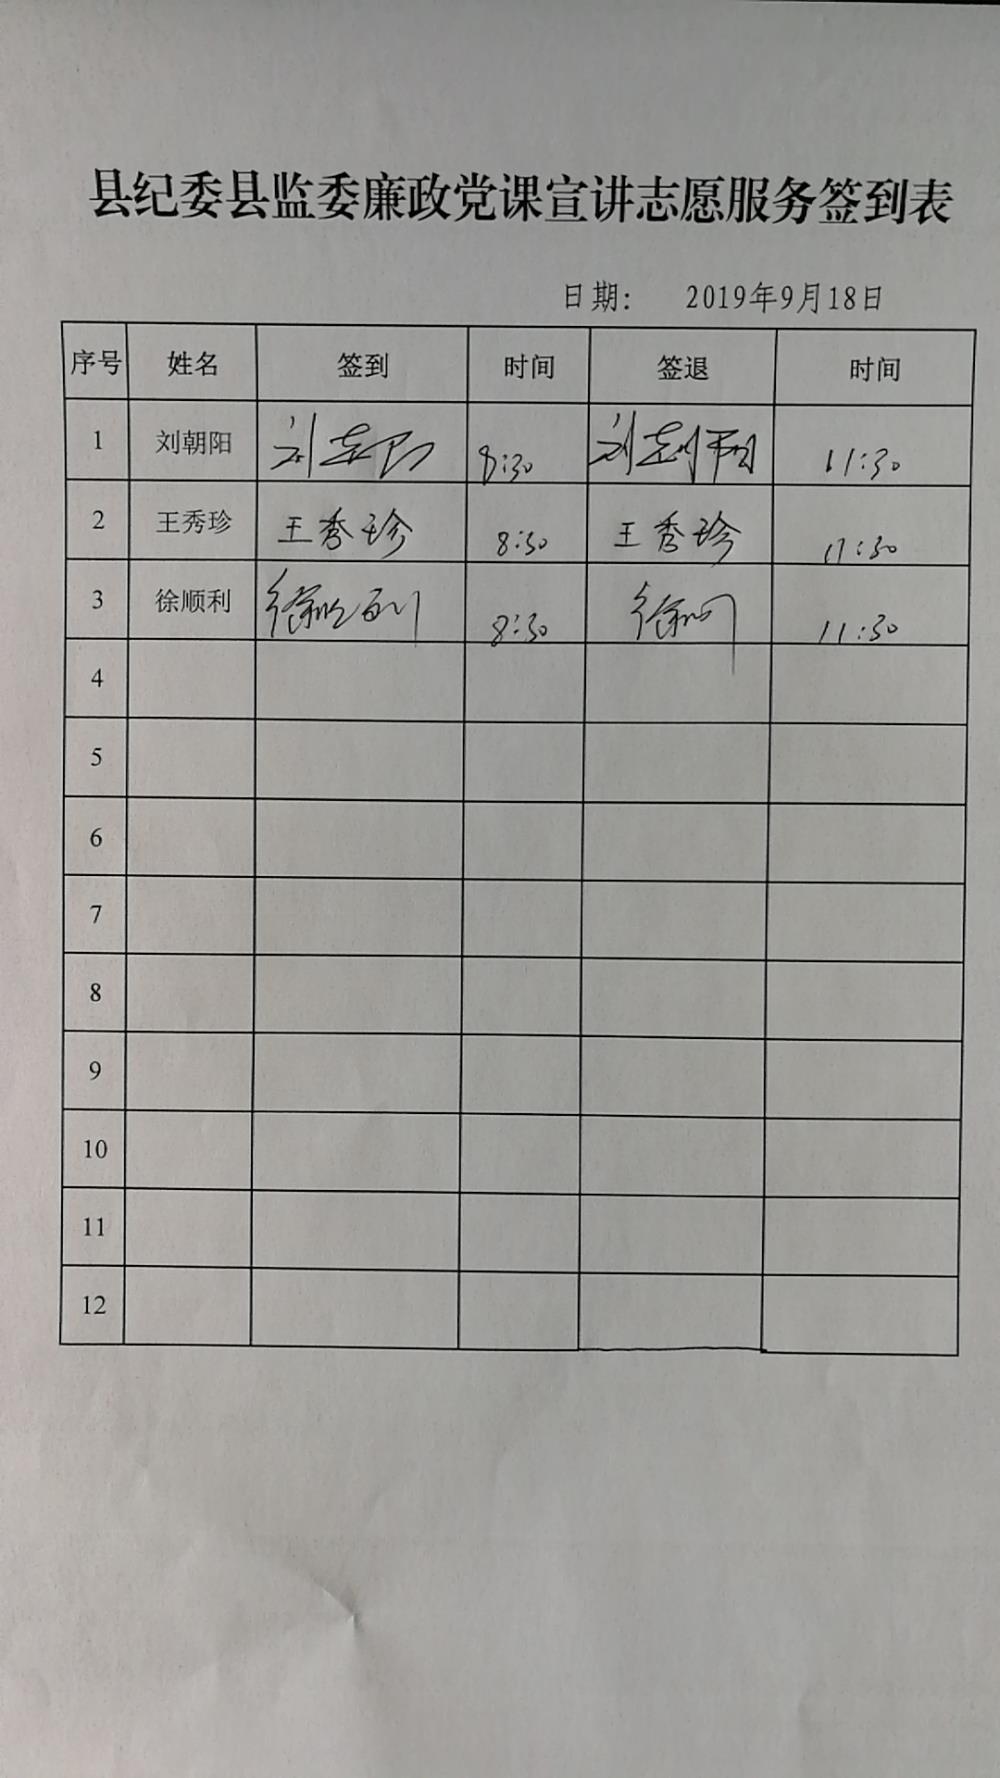 县纪委县监委廉政党课宣讲志愿服务签到表
日期: 2019年9月18日
序号 姓名 签到 时间 签退 时间
1 刘朝阳 8:30 11:30
2 王秀珍 王秀珍 8:30 王秀珍 11:30
3 徐顺利 8:30 11:30
4
5
6
7
8
9
10
11
12